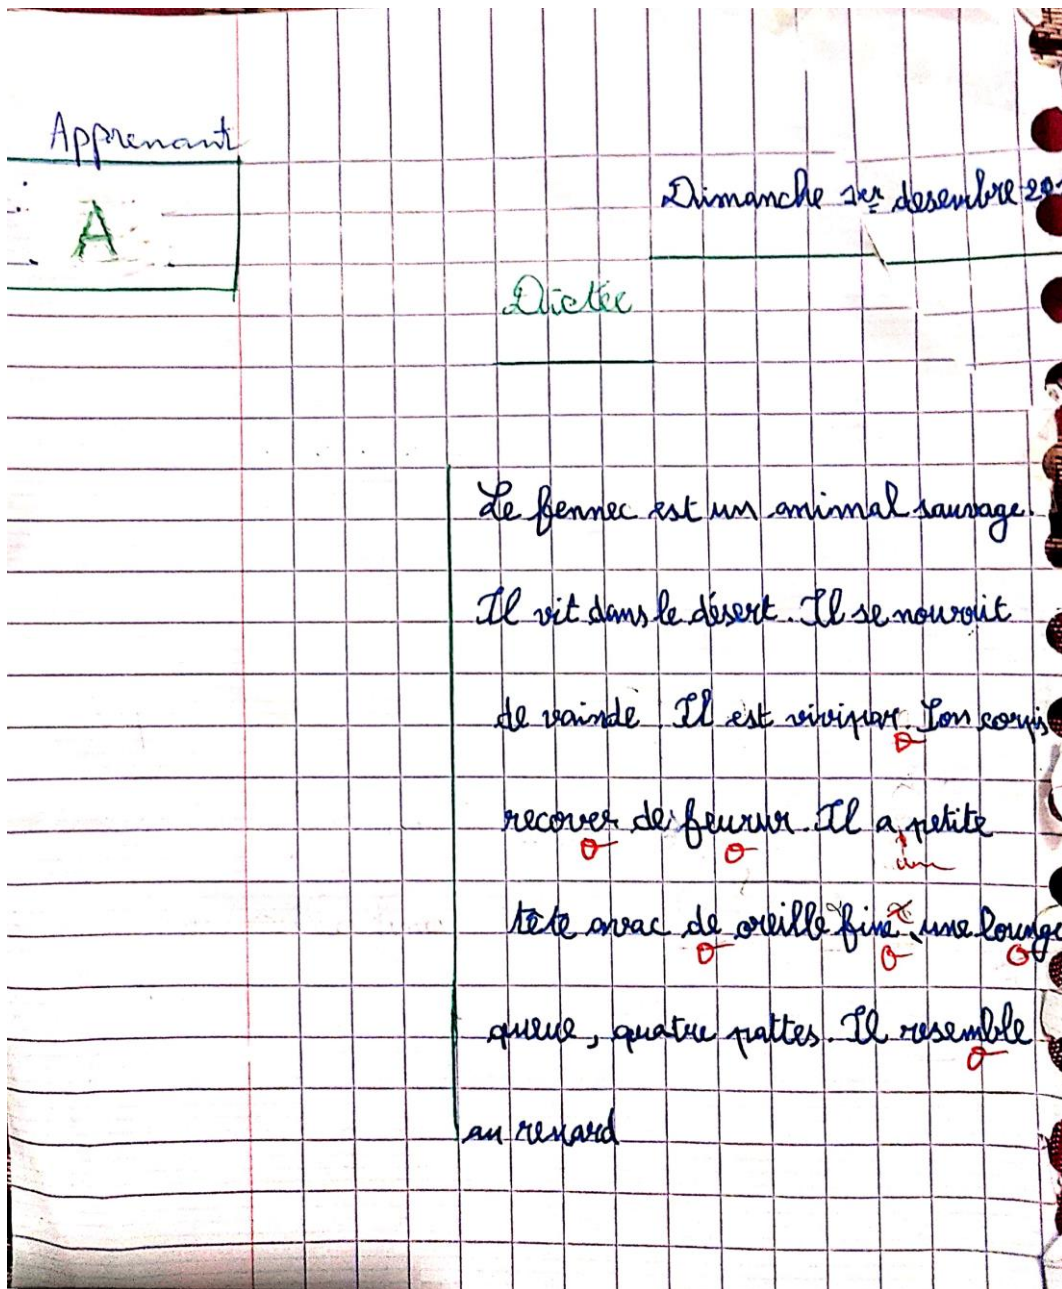 Apprenant
A
Dimanche 1er desembre 20
Dictée
Le fennec est un animal sauvage.
Il vit dans le désert. Il se nouroit
de vainde Il est vivipar. Son corps
recover de feurur. Il a petite
un
tête avac de oreille fine, une lounge
queue, quatre pattes. Il resemble
au renard